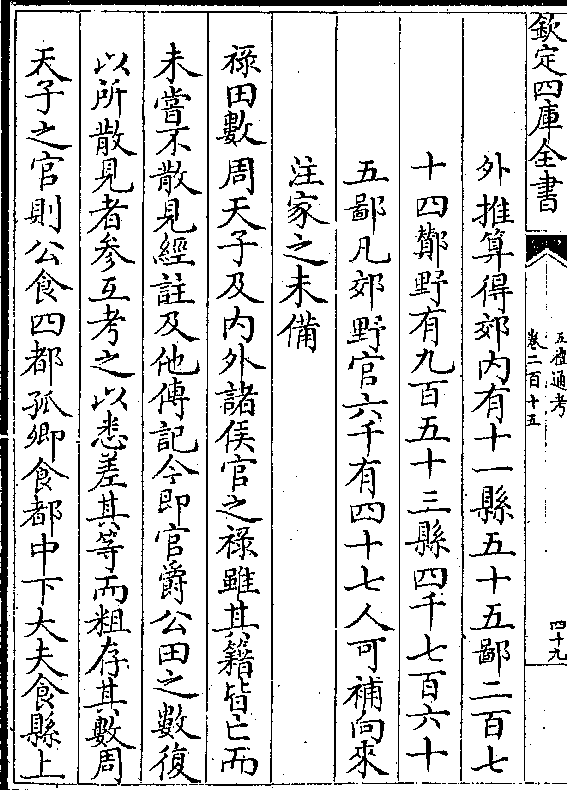 欽定四庫全書
五禮通考
卷二百十五
四十九
外推算得郊内有十一縣五十五鄙二百七
十四酇野有九百五十三縣四千七百六十
五鄙凡郊野官六千有四十七人可補向來
注家之未備
禄田數周天子及内外諸侯官之禄雖其籍皆亡而
未嘗不散見經註及他傳記今即官爵公田之數復
以所散見者參互考之以悉差其等而粗存其數周
天子之官則公食四都孤卿食都中下大夫食縣上